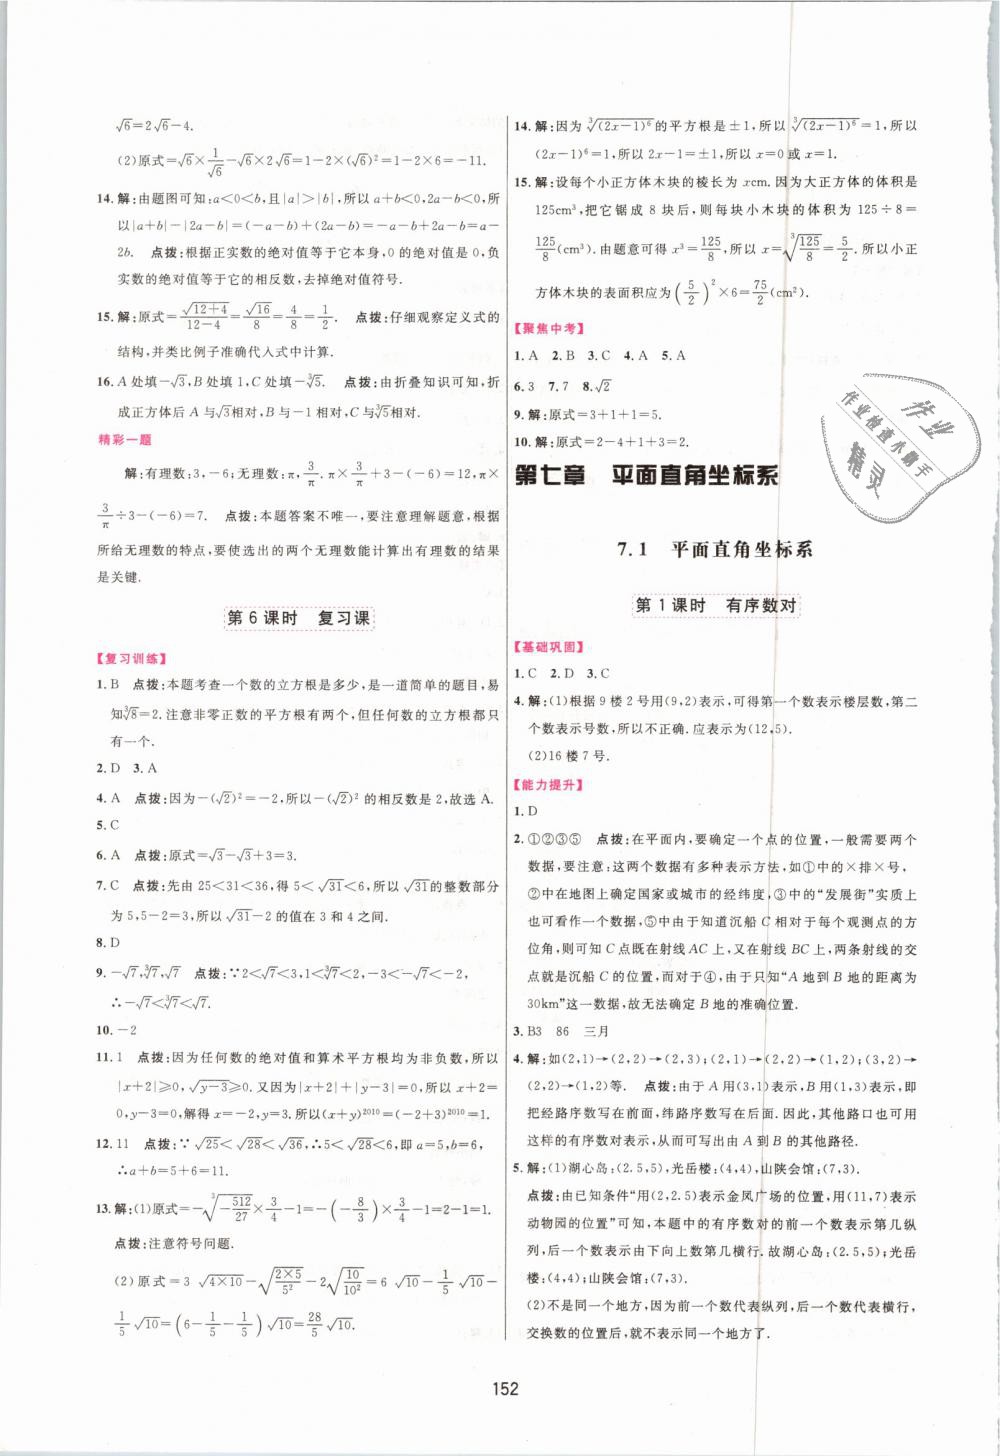 √6=2√6-4.
(2)原式=√6×1/√6-√6×2√6=1-2×(√6)²=1-2×6=-11.
14.解:由题图可知:a<0<b,且|a|>|b|,所以a+b<0,2a-b<0,所
以|a+b|-|2a-b|=(-a-b)+(2a-b)=-a-b+2a-b=a-
2b. 点拨:根据正实数的绝对值等于它本身,0的绝对值是0,负
实数的绝对值等于它的相反数,去掉绝对值符号.
15.解:原式=√(12+4)/(12-4)=√16/8=4/8=1/2. 点拨:仔细观察定义式的
结构,并类比例子准确代入式中计算.
16.A处填-√3,B处填1,C处填-∛5. 点拨:由折叠知识可知,折
成正方体后A与√3相对,B与-1相对,C与∛5相对.
精彩一题
解:有理数:3,-6;无理数:π,3/π. π×3/π+3-(-6)=12,π×
3/π÷3-(-6)=7. 点拨:本题答案不唯一,要注意理解题意,根据
所给无理数的特点,要使选出的两个无理数能计算出有理数的结果
是关键.
第6课时 复习课
【复习训练】
1.B 点拨:本题考查一个数的立方根是多少,是一道简单的题目,易
知∛8=2.注意非零正数的平方根有两个,但任何数的立方根都只
有一个.
2.D 3.A
4.A 点拨:因为-(√2)²=-2,所以-(√2)²的相反数是2,故选A.
5.C
6.A 点拨:原式=√3-√3+3=3.
7.C 点拨:先由25<31<36,得5<√31<6,所以√31的整数部分
为5,5-2=3,所以√31-2的值在3和4之间.
8.D
9.-√7,∛7,√7 点拨:∵2<√7<3,1<∛7<2,-3<-√7<-2,
∴-√7<∛7<√7.
10.-2
11.1 点拨:因为任何数的绝对值和算术平方根均为非负数,所以
|x+2|≥0,√(y-3)≥0.又因为|x+2|+|y-3|=0,所以x+2=
0,y-3=0,解得x=-2,y=3.所以(x+y)²⁰¹⁰=(-2+3)²⁰¹⁰=1.
12.11 点拨:∵√25<√28<√36,∴5<√28<6,即a=5,b=6,
∴a+b=5+6=11.
13.解:(1)原式=-∛(-512/27)×3/4-1=-(-8/3)×3/4-1=2-1=1.
点拨:注意符号问题.
(2)原式=3√(4×10)-√(2×5/5²)-2√(10/10²)=6√10-1/5√10-
1/5√10=(6-1/5-1/5)√10=28/5√10.
14.解:因为∛(2x-1)⁶的平方根是±1,所以∛(2x-1)⁶=1,所以
(2x-1)⁶=1,所以2x-1=±1,所以x=0或x=1.
15.解:设每个小正方体木块的棱长为xcm.因为大正方体的体积是
125cm³,把它锯成8块后,则每块小木块的体积为125÷8=
125/8(cm³).由题意可得x³=125/8,所以x=∛(125/8)=5/2.所以小正
方体木块的表面积应为(5/2)²×6=75/2(cm²).
【聚焦中考】
1.A 2.B 3.C 4.A 5.A
6.3 7.7 8.√2
9.解:原式=3+1+1=5.
10.解:原式=2-4+1+3=2.
第七章 平面直角坐标系
7.1 平面直角坐标系
第1课时 有序数对
【基础巩固】
1.C 2.D 3.C
4.解:(1)根据9楼2号用(9,2)表示,可得第一个数表示楼层数,第二
个数表示号数,所以不正确.应表示为(12,5).
(2)16楼7号.
【能力提升】
1.D
2.①②③⑤ 点拨:在平面内,要确定一个点的位置,一般需要两个
数据,要注意:这两个数据有多种表示方法,如①中的×排×号,
②中在地图上确定国家或城市的经纬度,③中的“发展街”实质上
也可看作一个数据,⑤中由于知道沉船C相对于每个观测点的方
位角,则可知C点既在射线AC上,又在射线BC上,两条射线的交
点就是沉船C的位置,而对于④,由于只知“A地到B地的距离为
30km”这一数据,故无法确定B地的准确位置.
3.B3 86 三月
4.解:如(2,1)→(2,2)→(2,3);(2,1)→(2,2)→(1,2);(3,2)→
(2,2)→(1,2)等. 点拨:由于A用(3,1)表示,B用(1,3)表示,即
把经路序数写在前面,纬路序数写在后面.因此,其他路口也可用
这样的有序数对表示,从而可写出由A到B的其他路径.
5.解:(1)湖心岛:(2.5,5),光岳楼:(4,4),山陕会馆:(7,3).
点拨:由已知条件“用(2,2.5)表示金凤广场的位置,用(11,7)表示
动物园的位置”可知,本题中的有序数对的前一个数表示第几纵
列,后一个数表示由下向上数第几横行.故湖心岛:(2.5,5);光岳
楼:(4,4);山陕会馆:(7,3).
(2)不是同一个地方,因为前一个数代表纵列,后一个数代表横行,
交换数的位置后,就不表示同一个地方了.
152
作业
作业检查小助手
精灵